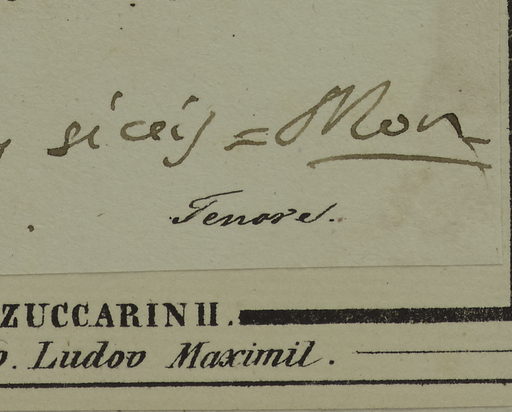 siccis = Mon
Tenore.
ZUCCARINII.
Ludov Maximil.